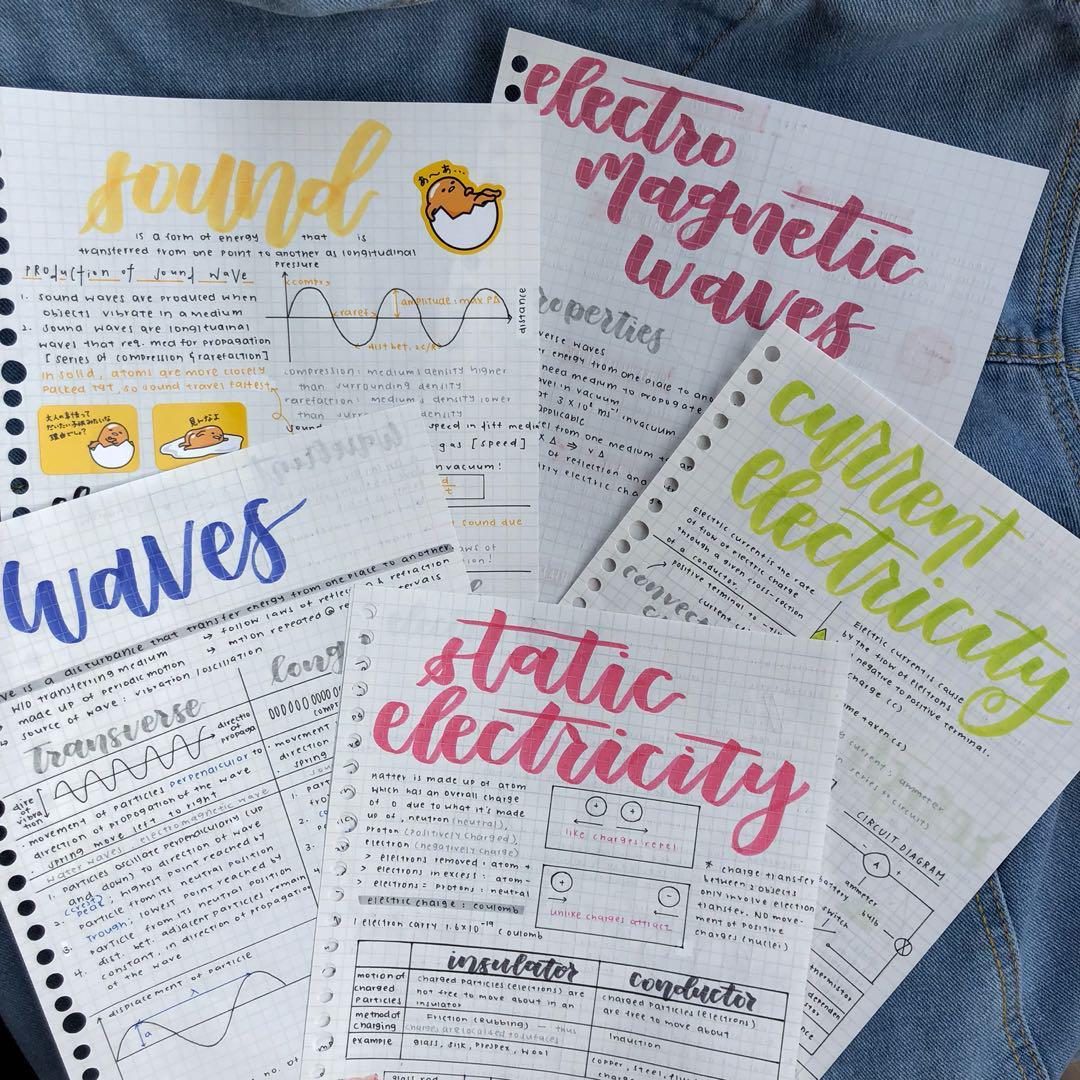 sound
あ～あ...
is a form of energy that is
transferred from one point to another as longitudinal
Production of sound wave
1. sound waves are produced when
objects vibrate in a medium
2. sound waves are longitudinal
waves that req. med for propagation
[series of compression & rarefaction]
in solid, atoms are more closely
packed tgt, so sound travel faitest
大人の事情って
だいたい子供みたいな
理由でしょ?
見んなよ
pressure
compr.
raref
amplitude : max PΔ
distance
dist bet. 2C/R
compression : medium's density higher
than surrounding density
rarefaction : medium's density lower
than density
speed in diff
gas [speed]
vacuum!
d
t
sound due
laws of
electro
magnetic
waves
properties
energy from one place to
need medium to propagate
in vacuum
3 x 10⁸ ms⁻¹ in vacuum
from one medium to
of reflection and
carry electric
current
electricity
Electric current is the rate
of flow of electric charge
through a given cross-section
of a conductor
positive terminal to
Electric current is cause
by the flow of eletrons
negative to positive terminal.
charge (C)
time taken (s)
current : ammeter
in series to circuits
CIRCUIT DIAGRAM
A
battery
ammeter
bulb
switch
thermistor
waves
is a disturbance that transfer energy from one place to another
w/o transferring medium
→ follow laws of & refraction
made up of periodic motion
→ motion repeated @
source of wave : vibration / oscillation
transverse
direction
of
propaga
dire
of
vibra
tion
movement of particles perpendicular to
direction of propogation of the wave
spring move left to right
water waves electromagnetic wave
1. particles oscillate perpendicularly (up
and down) to direction of wave
2. crest/peak : highest point reached by
particle from its neutral position
3. Trough : lowest point reached by
particle from its neutral position
4. dist. bet. adjacent particles remain
constant, in direction of propagation
of the wave
displacement of particle
λ
a
static
electricity
Matter is made up of atom
which has an overall charge
of 0 due to what it's made
up of, neutron (neutral),
proton (positively charged),
electron (negatively charge)
> eletrons removed : atom +
> eletrons in excess : atom -
> electrons = protons : neutral
electric charge : coulomb
1 electron carry 1.6x10⁻¹⁹ coulomb
+ +
like charges repel
+ -
unlike charges attract
* charge transfer
between 2 objects
only involve electron
transfer. NO move-
ment of positive
charges (nuclei)
insulator
conductor
motion of
charged
particles
charged particles (electrons) are
not free to move about in an
insulator
charged particles (electrons)
are free to move about
method of
charging
Friction (Rubbing) — thus
charges are localised to surfaces
induction
example
glass, silk, prespex, wool
copper, steel,
glass rod